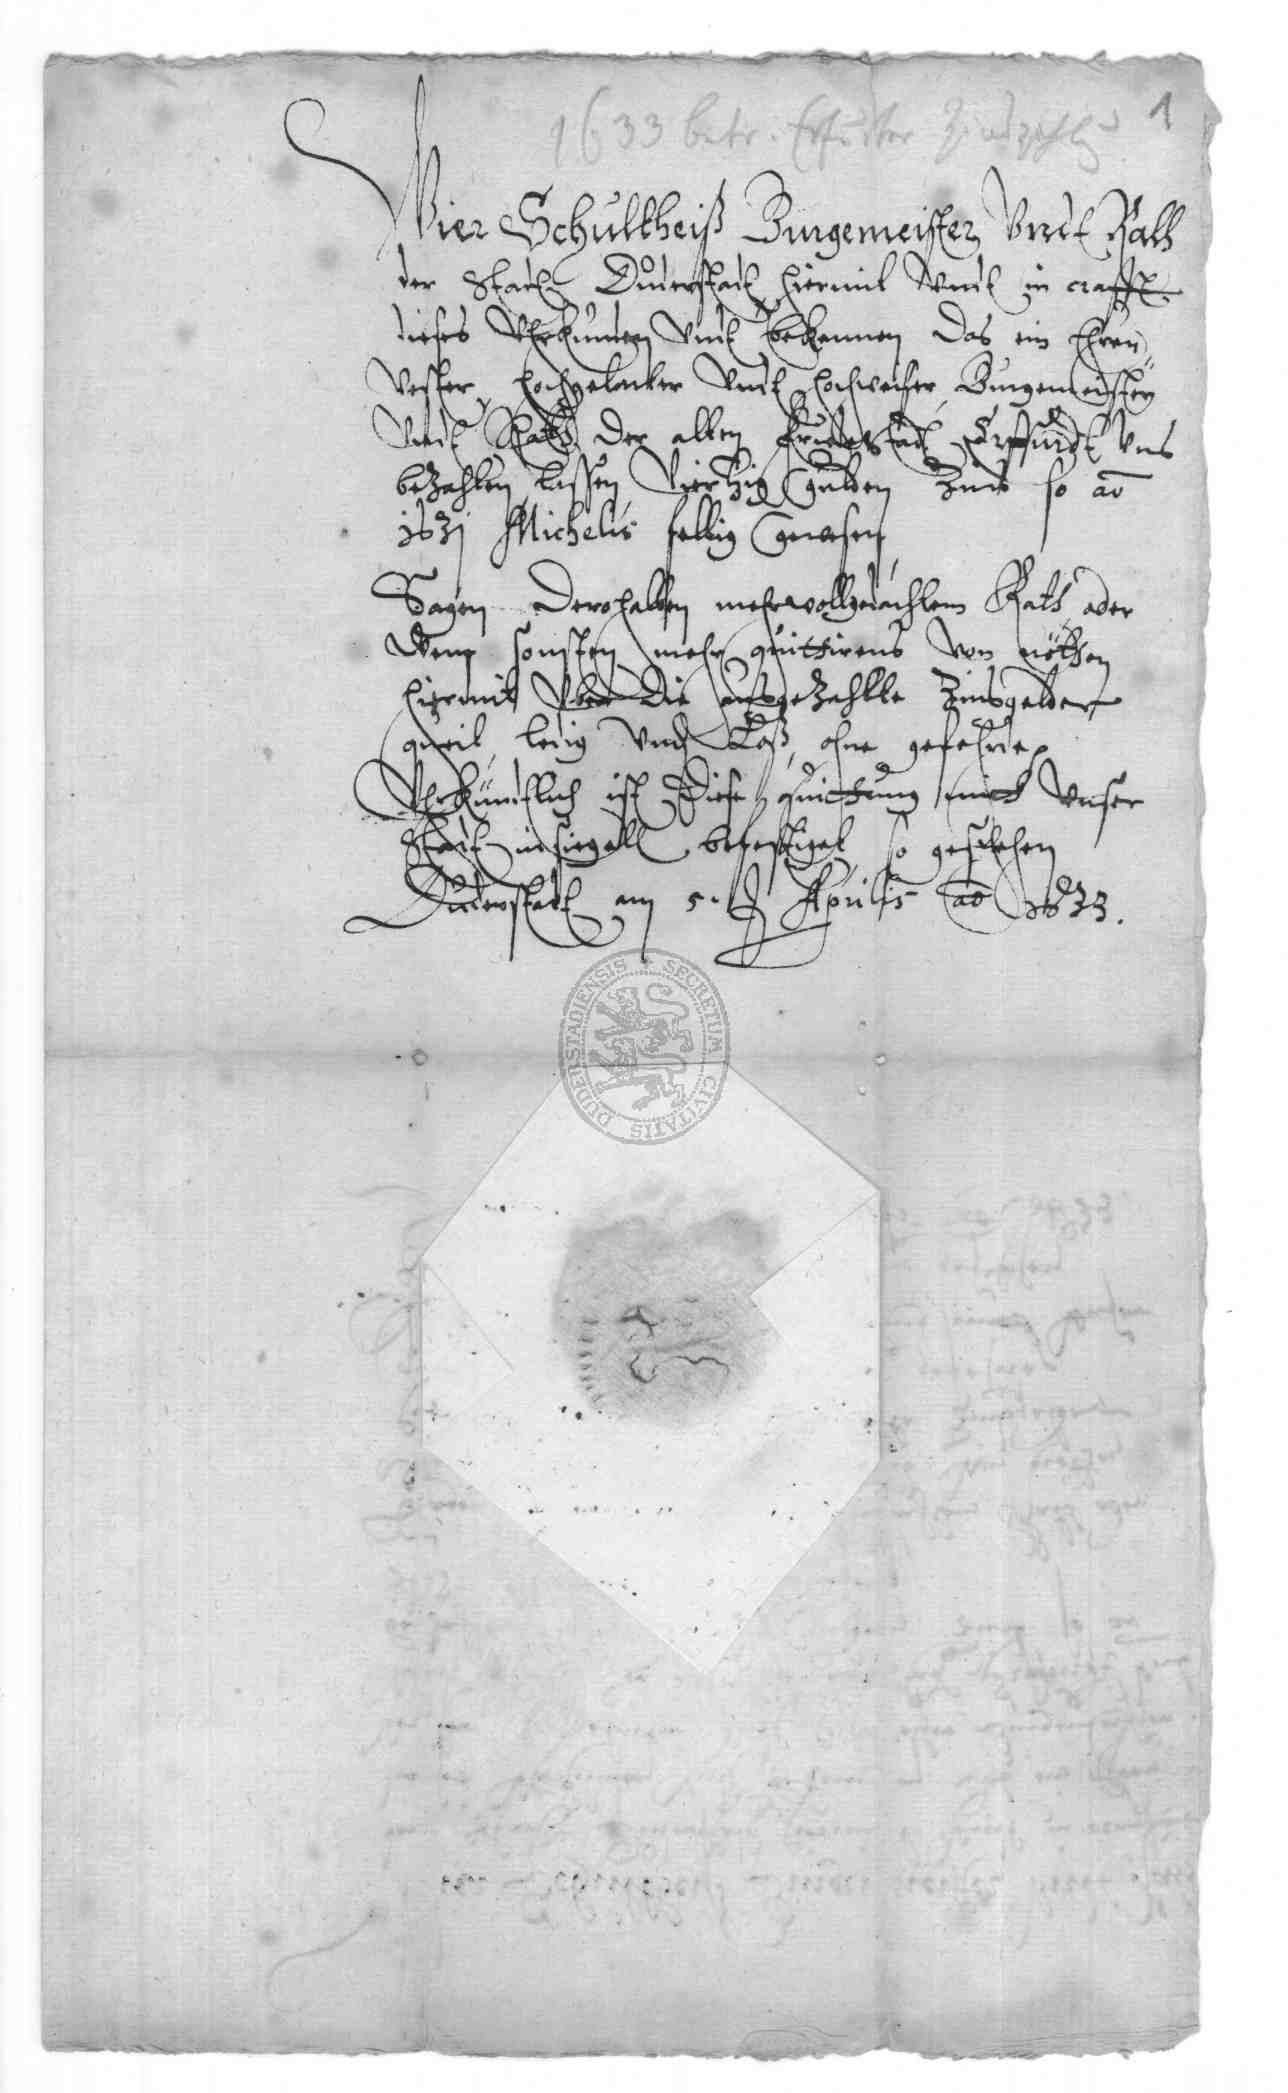 1633 betr. Erfurter Zinszahlg
1
Wier Schultheiß Burgemeister Vndt Rath
der Stadt Duderstadt hiermit Vndt in crafft
dieses Vhrkunden Vndt bekennen Das ein Ehren
Vester, hochgelarter Vndt hochweiser Burgemeister
Vndt Rath Der alten Stadt Erffurdt Vns
bezahlen lassen Vierzig Gulden Zins so ao
1631 Michelis fellig gewesen
Sagen Derohalben mehrwollgedachtem Rath oder
Wem sonsten mehr quittirens von nöthen
hiermit Vber die ausgezahlte Zinsgelder
queit, ledig Vndt Loß, ohne gefehrde,
Vhrkundtlich ist Diese quittung mitt Vnser
Stadt insiegell befestiget, so geschehen
Duderstadt am 5. Aprilis ao 1633.
SECRETUM CIVITATIS DUDERSTADIENSIS